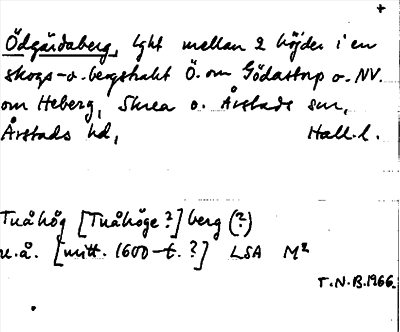 +
Ödgärdaberg, lght mellan 2 höjder i en
skogs- o. bergstrakt Ö. om Gödastorp o. NV.
om Heberg, Skrea o. Årstads snr,
Årstads hd, Hall. l.
Tuåhög [Tuåhöge ?] berg (?)
u.å. [mitt. 1600-t. ?] LSA M²
T.N.B. 1966.